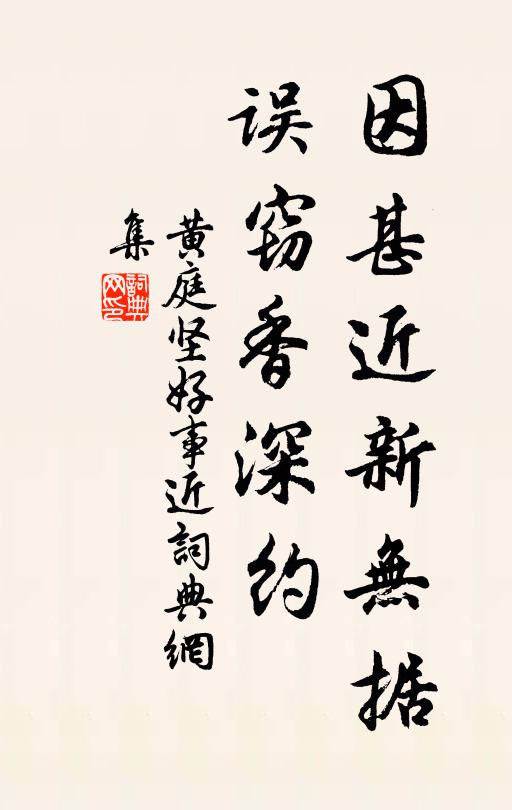 因甚近新無据
误窃香深约
黄庭坚好事近詞典網
集
詞典
网印